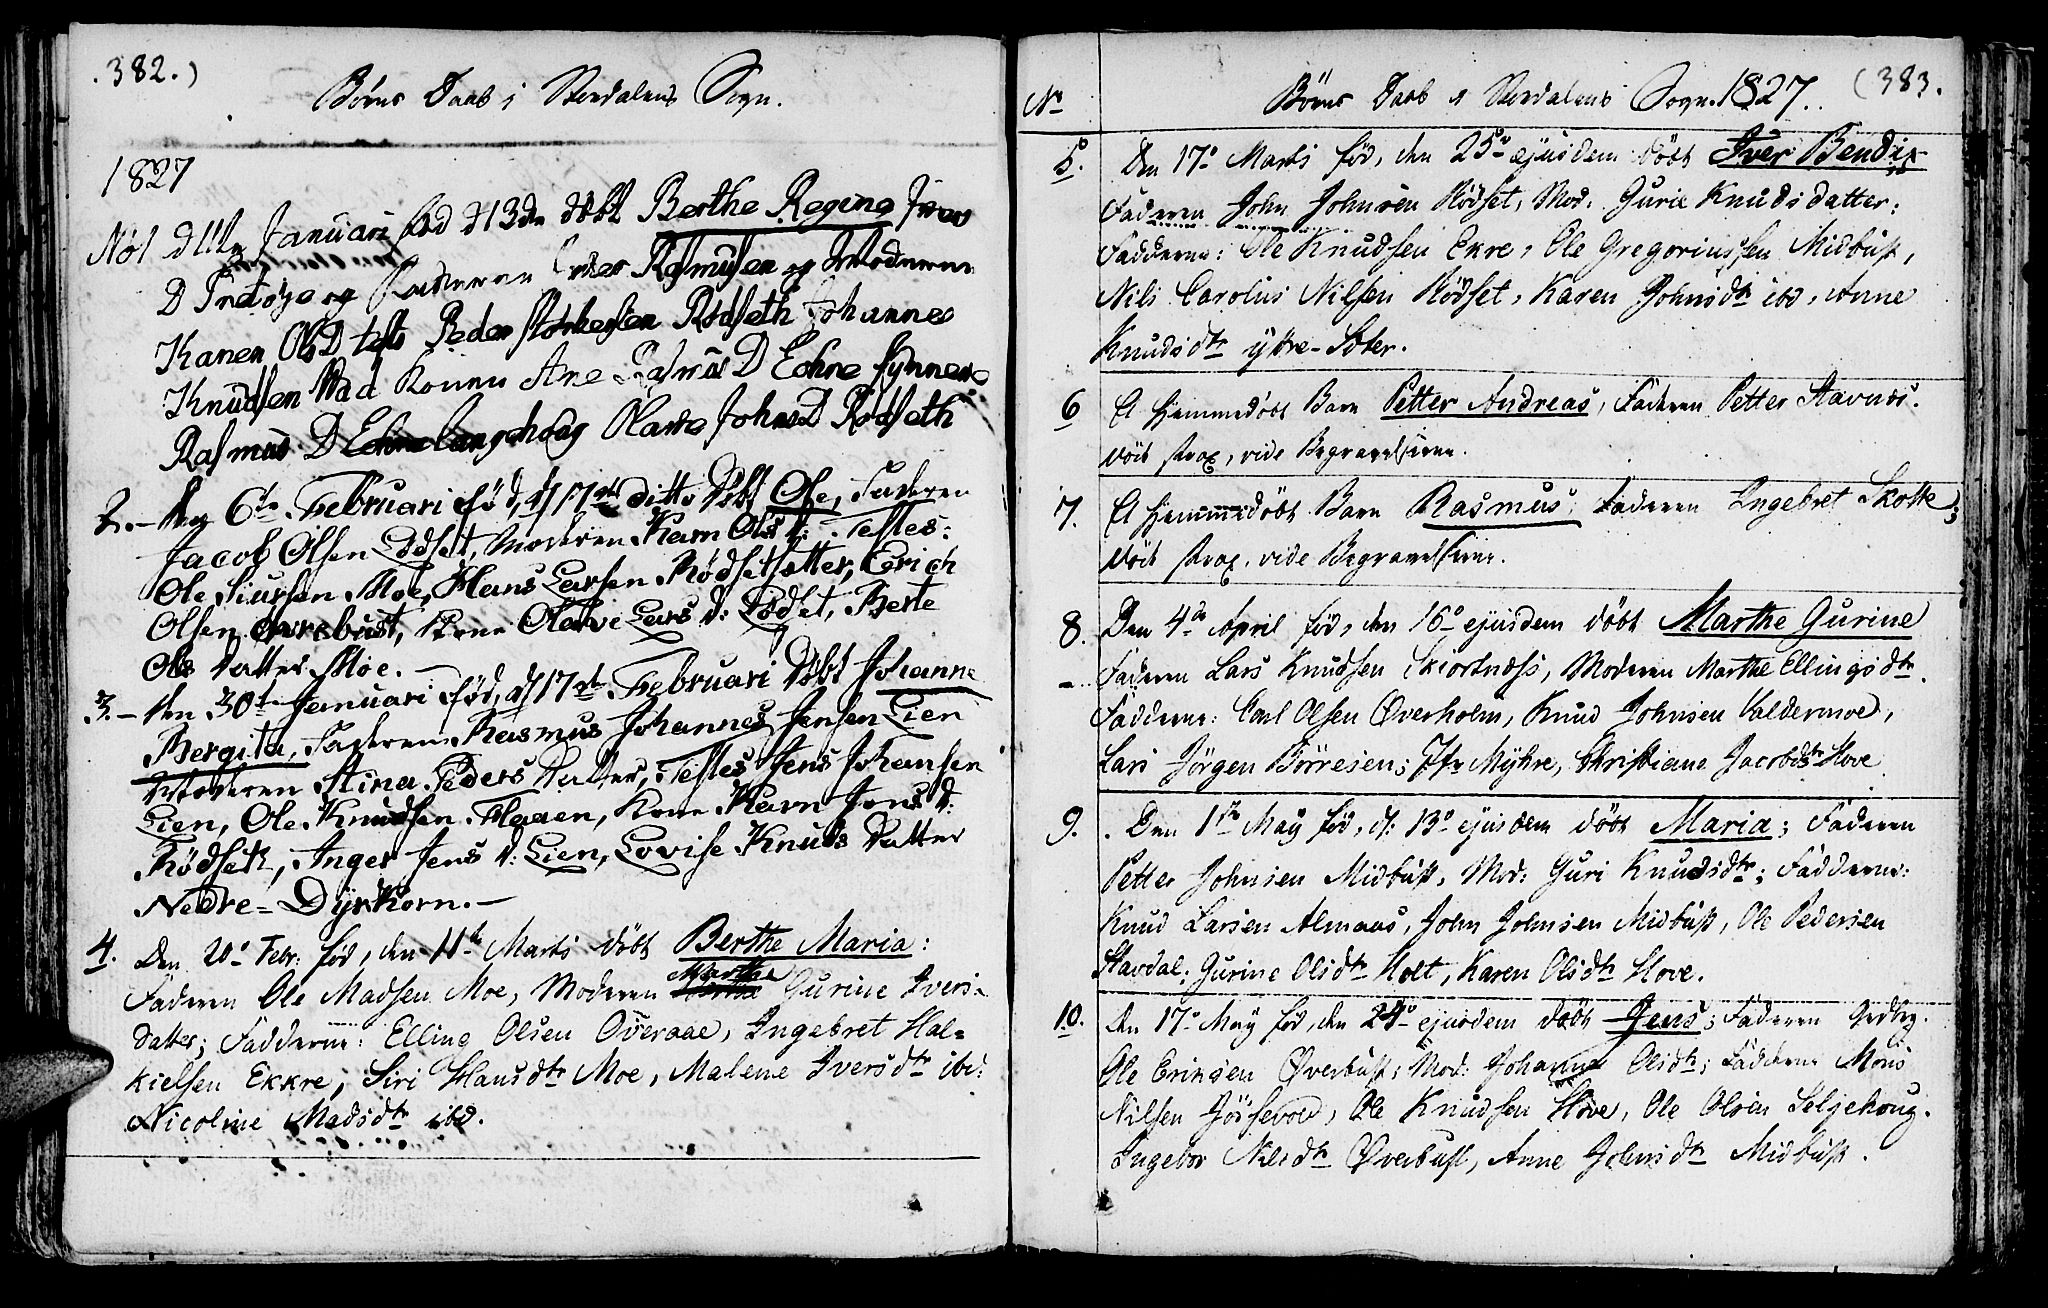 .382.)
Børns Daab i Stordalens Sogn.
1827
No1 d 11te Januari fød d 13de døbt Berthe Regine Ivers
D Fretøye og Faderen Iver Rasmusen og Moderen
Karen Ols D test Peder Rødseth Johannes
Knudsen Vad Konen Ane Rasmus D Echre Synnere
Rasmus D Echre langehoug Olave Johns D Rødseth
2. - den 6te Februari fød, d/17de ditto Døbt Ole, Faderen
Jacob Olsen Lødset, Moderen Karn Ols d: Testes:
Ole Siursen Moe, Hans Larsen Rødsetsætter, Erich
Olsen Øvrebust, Kone Olave Lars d: Lødset, Berte
Ols datter Moe. -
3. - den 30te Januari fød, d/17de Februari døbt Johanne
Bergita, Faderen Rasmus Johannes Jensen Lien
Moderen Stina Peders Datter, Testes Jens Johansen
Lien, Ole Knudsen Flaaen, Kone Karn Jons d:
Rødseth, Inger Jens d: Lien, Lovise Knuds Datter
Nedre=Dyrkorn. -
4. Den 20de Febr: fød, den 11te Marts døbt Berthe Maria:
Faderen Ole Madsen Moe, Moderen Marthe Gurine Ivers-
datter; Fadderne: Elling Olsen Overaae, Ingebret Hal=
kielsen Ekkre, Siri Hansdtr Moe, Malene Iversdtr ibd:
Nicoline Madsdtr ibd.
No Børns Daab i Stordalens Sogn. 1827. (383.
5. Den 17de Marts fød, den 25de ejusdem døbt Iver Bendix
Faderen John Johnsen Rødset, Mod: Gurie Knudsdatter:
Fadderne: Ole Knudsen Ekre, Ole Gregoriussen Midbust,
Nils Carolus Nilsen Rødset, Karen Johnsdtr ibd, Anne
Knudsdtr ytre-Sæter.
6 Et hjemmedøbt Barn Petter Andreas, Faderen Petter Stavnes.
døde strax, vide Begravelserne.
7. Et hjemmedøbt Barn Rasmus; Faderen Ingebret Skotte;
døde strax, vide Begravelserne.
8. Den 4de April fød, den 16de ejusdem døbt Marthe Gurine
- Faderen Lars Knudsen Skiortnæss, Moderen Marthe Ellingsdtr.
Fadderne: Carl Olsen Øverholm, Knud Johnsen Valdermoe,
Lars Jørgen Børresen; Jfr Myhre, Christiane Jacobsdtr Hove
9. Den 1ste May fød, d: 13de ejusdem døbt Maria; Faderen
Petter Johnsen Midbust, Mod: Guri Knudsdtr; Fadderne:
Knud Larsen Almaas, John Johnsen Midbust, Ole Pedersen
Stavdal; Gurine Olsdtr Holt, Karen Olsdtr Hove.
10. Den 17de May fød, den 24de ejusdem døbt Jens; Faderen Gdbrg.
Ole Eriksen Øverbust, Mod: Johanne Olsdtr; Fadderne Mons
Nilsen Jørsevoe, Ole Knudsen Hove, Ole Olsen Seljehoug.
Ingebor Nilsdtr Øverbust, Anne Johnsdtr Midbust.